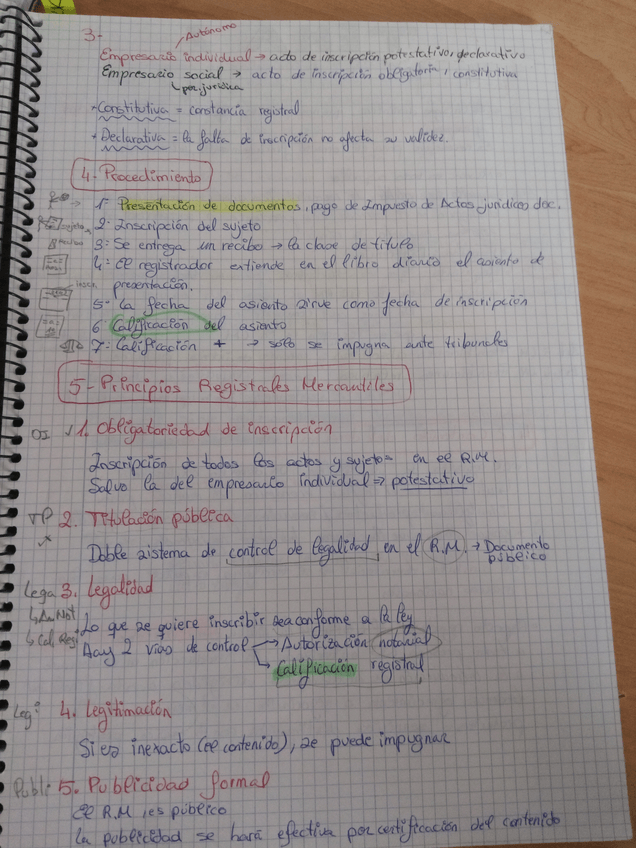 3-
Autónomo
Empresario individual → acto de inscripción potestativo, declarativo
Empresario social → acto de inscripción obligatoria, constitutiva
↳ per. jurídica
• Constitutiva = constancia registral
• Declarativa = la falta de inscripción no afecta su validez.
4- Procedimiento
1- Presentación de documentos, pago de Impuesto de Actos jurídicos doc.
sujeto 2- Inscripción del sujeto
Recibo 3- Se entrega un recibo → la clave de título
4- El registrador extiende en el libro diario el asiento de
presentación.
5- La fecha del asiento sirve como fecha de inscripción
6 Calificación del asiento
7- Calificación + → solo se impugna ante tribunales
5- Principios Registrales Mercantiles
OI 1. Obligatoriedad de inscripción
Inscripción de todos los actos y sujetos en el R.M.
Salvo la del empresario individual ⇒ potestativo
TP 2. Titulación pública
Doble sistema de control de legalidad, en el R.M. → Documento
público
Lega 3. Legalidad
↳ Au Not Lo que se quiere inscribir sea conforme a la ley
↳ Cal. Regi Hay 2 vías de control → Autorización notarial
→ Calificación registral
Legi 4. Legitimación
Si es inexacto (el contenido), se puede impugnar
Publi 5. Publicidad formal
El R.M, es público
La publicidad se hará efectiva por certificación del contenido